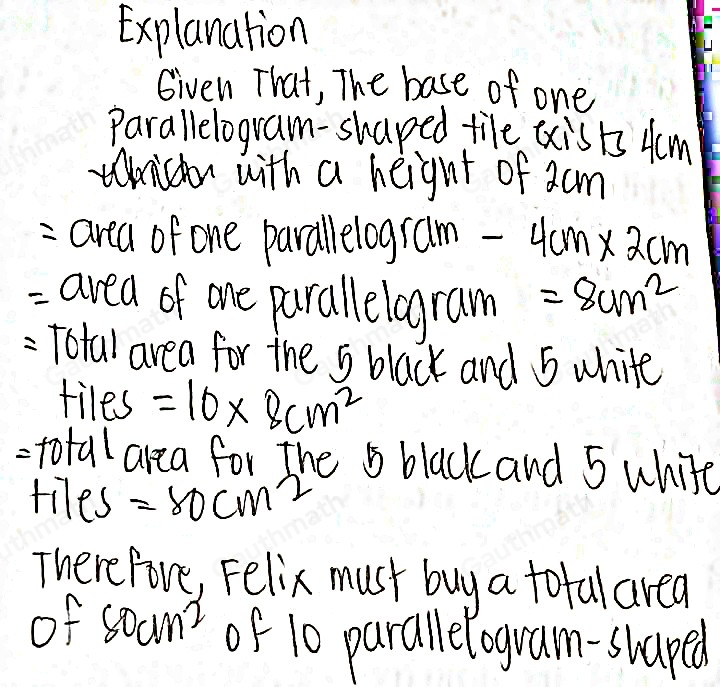 Explanation
Given That, The base of one
Parallelogram-shaped tile exists 4cm
with a height of 2cm
= area of one parallelogram - 4cm x 2cm
= area of one parallelogram = 8cm²
= Total area for the 5 black and 5 white
tiles = 10 x 8cm²
= total area for The 5 black and 5 white
tiles = 80cm²
Therefore, Felix must buy a total area
of 80cm² of 10 parallelogram-shaped